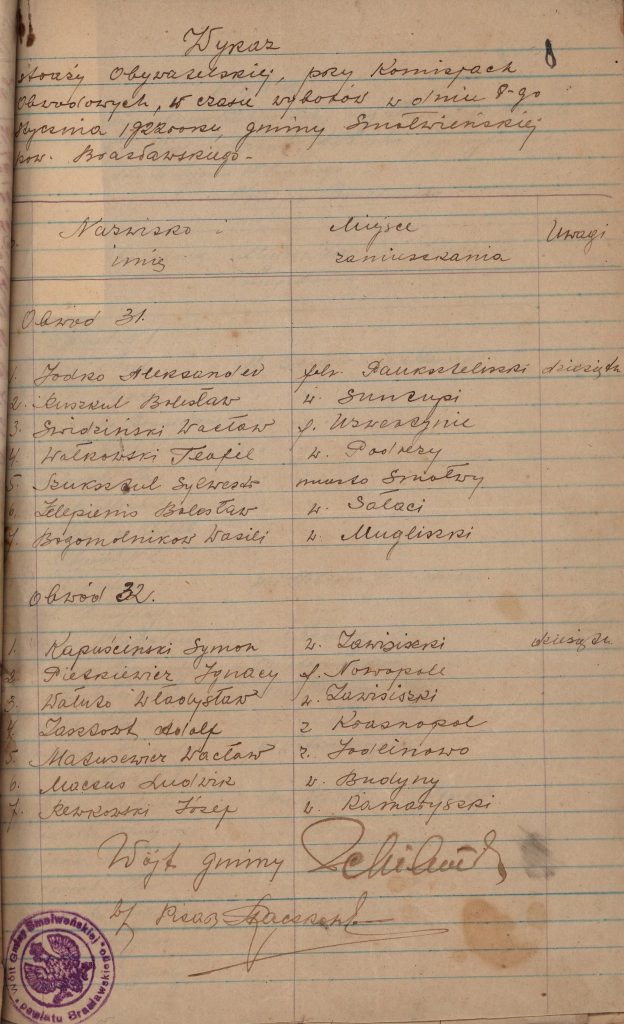 Wykaz
straży Obywatelskiej, przy Komisjach
Obwodowych, w czasie wyborów w dniu 8-go
Stycznia 1922 roku, gminy Smołwieńskiej
pow. Brasławskiego.-
Nazwisko i
imię
Miejsce
zamieszkania
Uwagi
Obwód 31.
1. Jodko Aleksander folw. Paukszteliszki dziesiętn.
2. Puszkul Bolesław w. Suncupi
3. Świdziński Wacław f.
4. Wałkowski Teofil w. Podrezy
5. Szuksztul Sylwestr miasto Smołwy
6. Zelepienis Bolesław w. Sałaci
7. Bogomolnikow Wasili w. Mugliszki
Obwód 32.
1. Kapuściński Symon w. Zawisiszki dziesiętn.
2. Pietkiewicz Ignacy f. Nowopole
3. Wałuto Władysław w. Zawisiszki
4. Adolf z Krasnopol
5. Matusewicz Wacław z. Jodlinowo
6. Maczus Ludwik w. Budyny
7. Rewkowski Józef w. Ramaryszki
Wójt gminy
Pisarz
Wójt Gminy Smołweńskiej
powiatu Brasławskiego